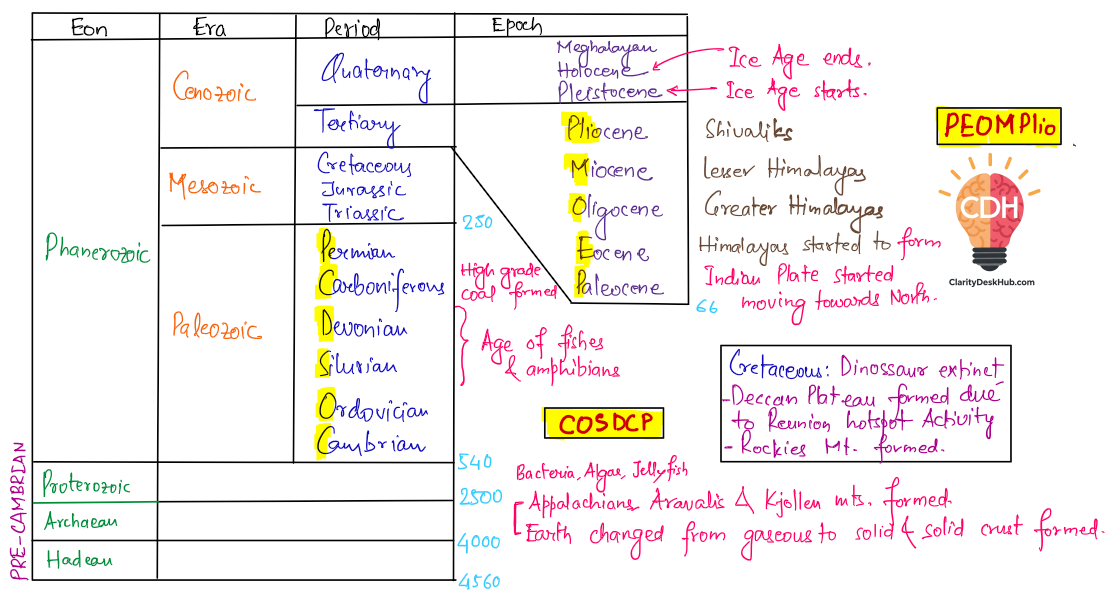 Eon Era Period Epoch
Meghalayan
Holocene
Pleistocene
Ice Age ends.
Ice Age starts.
Cenozoic
Quaternary
Tertiary
Pliocene Shivaliks
Miocene Lesser Himalayas
Oligocene Greater Himalayas
Eocene Himalayas started to form
Paleocene Indian Plate started
66 moving towards North.
PEOMPlio
CDH
ClarityDeskHub.com
Mesozoic
Cretaceous
Jurassic
Triassic
250
Phanerozoic
Paleozoic
Permian
Carboniferous
Devonian
Silurian
Ordovician
Cambrian
High grade
coal formed
Age of fishes
& amphibians
COSDCP
Cretaceous: Dinossaur extinct
-Deccan Plateau formed due
to Reunion hotspot Activity
-Rockies Mt. formed.
540
PRE-CAMBRIAN
Proterozoic
Bacteria, Algae, Jellyfish
2500
Archaean
Appalachians Aravalis & Kjollen mts. formed.
Earth changed from gaseous to solid & solid crust formed.
4000
Hadean
4560